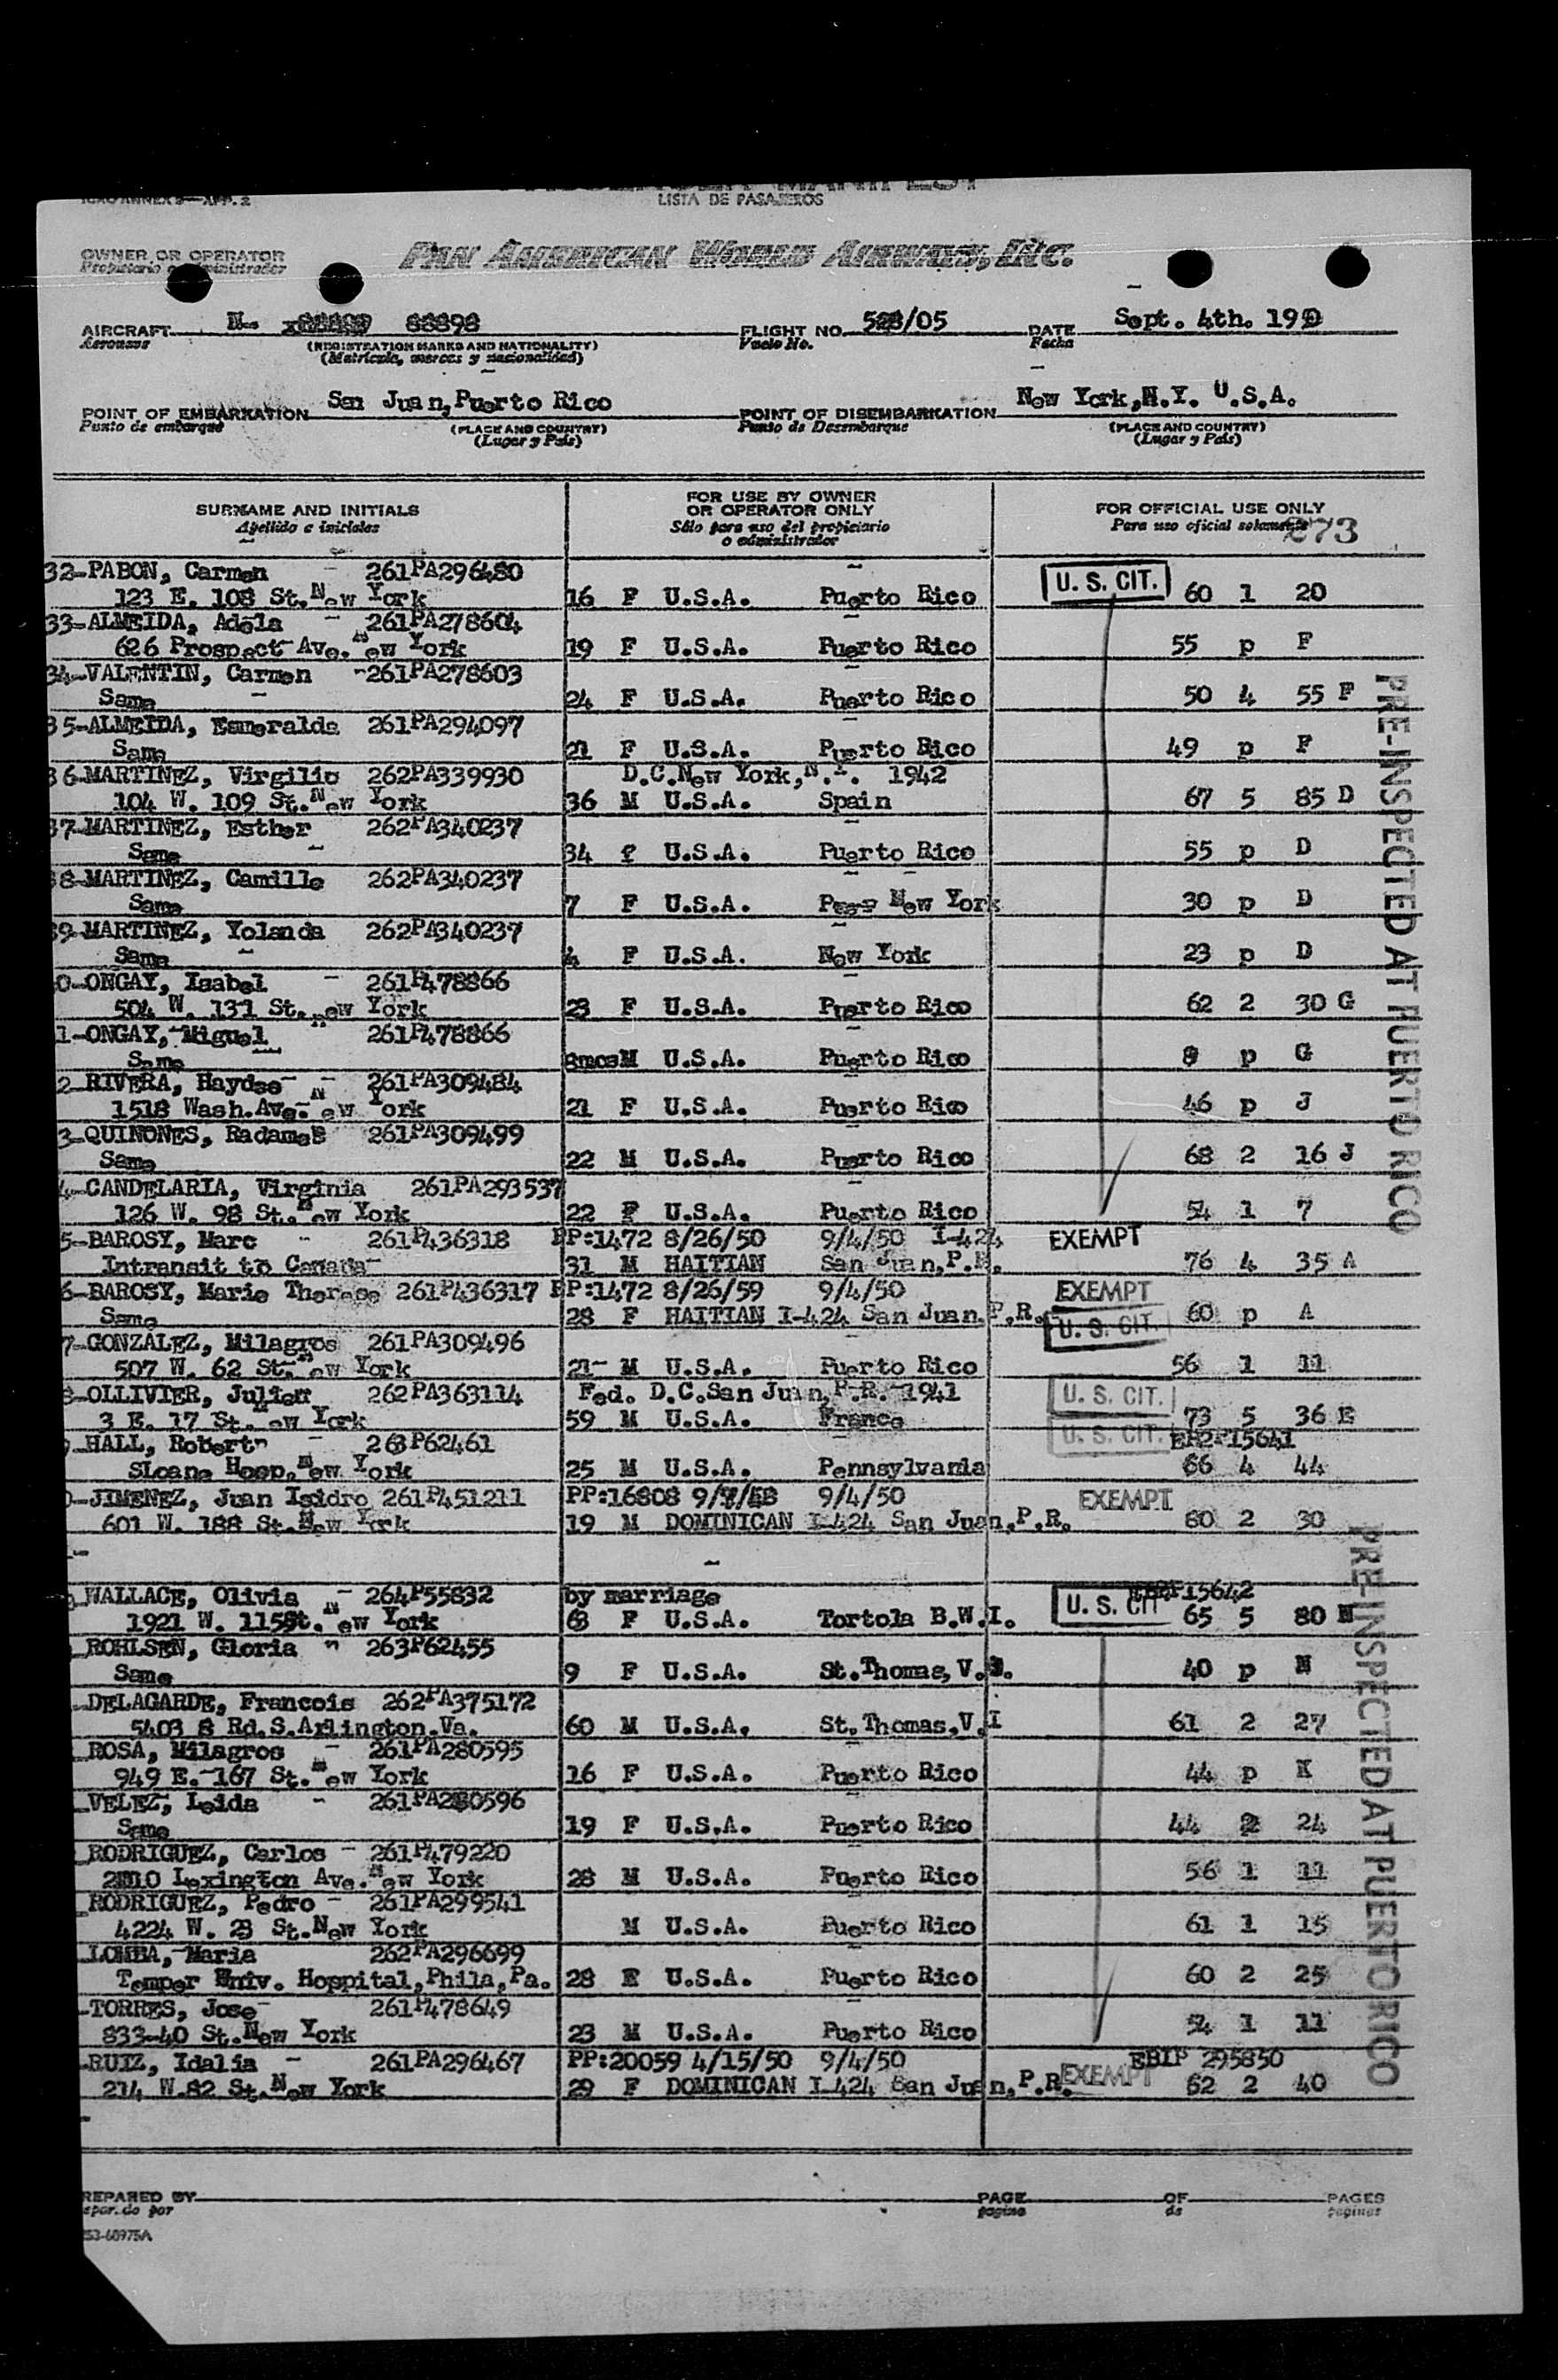 LISTA DE PASAJEROS
OWNER OR OPERATOR
PAN AMERICAN WORLD AIRWAYS, INC.
AIRCRAFT N- 88898 FLIGHT NO. 528/05 DATE Sept. 4th. 19
Aeronave (REGISTRATION MARKS AND NATIONALITY) Vuelo No. Fecha
(Matricula, marcas y nacionalidad)
POINT OF EMBARKATION San Juan,Puerto Rico POINT OF DISEMBARKATION New York,N.Y. U.S.A.
Punto de embarque (PLACE AND COUNTRY) Punto de Desembarque (PLACE AND COUNTRY)
(Lugar y País) (Lugar y País)
SURNAME AND INITIALS FOR USE BY OWNER OR OPERATOR ONLY FOR OFFICIAL USE ONLY
Apellido e iniciales Sólo para uso del propietario o administrador Para uso oficial solamente 273
32-PABON, Carmen - 261PA296480
123 E. 108 St.New York 16 F U.S.A. Puerto Rico U. S. CIT. 60 1 20
33-ALMEIDA, Adela - 261PA278604
626 Prospect Ave.New York 19 F U.S.A. Puerto Rico 55 p F
34-VALENTIN, Carmen -261PA278603
Same - 24 F U.S.A. Puerto Rico 50 4 55 F
35-ALMEIDA, Esmeralda 261PA294097
Same 21 F U.S.A. Puerto Rico 49 p F
36-MARTINEZ, Virgilio 262PA339930 D.C.New York,N.Y. 1942
104 W. 109 St.New York 36 M U.S.A. Spain 67 5 85 D
37-MARTINEZ, Esther 262PA340237
Same - 34 F U.S.A. Puerto Rico 55 p D
38-MARTINEZ, Camille 262PA340237
Same 7 F U.S.A. New York 30 p D
39-MARTINEZ, Yolanda 262PA340237
Same - 4 F U.S.A. New York 23 p D
0-ONGAY, Isabel - 261P478866
504 W. 131 St.New York 23 F U.S.A. Puerto Rico 62 2 30 G
1-ONGAY, Miguel 261P478866
Same 8mosM U.S.A. Puerto Rico p G
2-RIVERA, Haydee - 261PA309484
1518 Wash.Ave.New York 21 F U.S.A. Puerto Rico 46 p J
3-QUINONES, Radames 261PA309499
Same 22 M U.S.A. Puerto Rico 68 2 16 J
4-CANDELARIA, Virginia 261PA293537
126 W. 98 St.New York 22 F U.S.A. Puerto Rico 54 1 7
5-BAROSY, Marc - 261P436318 PP:1472 8/26/50 9/4/50 I-424 EXEMPT
Intransit to Canada 31 M HAITIAN San Juan,P.R. 76 4 35 A
6-BAROSY, Marie Therese 261P436317 PP:1472 8/26/59 9/4/50 EXEMPT
Same 28 F HAITIAN I-424 San Juan,P.R. 60 p A
7-GONZALEZ, Milagros 261PA309496 U. S. CIT.
507 W. 62 St.New York 21- M U.S.A. Puerto Rico 56 1 11
8-OLLIVIER, Julien 262PA363114 Fed. D.C.San Juan,P.R. 1941 U. S. CIT.
3 E. 17 St.New York 59 M U.S.A. France 73 5 36 E
HALL, Robert - 263P62461 U. S. CIT. 15641
Sloane Hosp.New York 25 M U.S.A. Pennsylvania 66 4 44
JIMENEZ, Juan Isidro 261P451211 PP:16808 9/4/50 EXEMPT
601 W. 188 St.New York 19 M DOMINICAN I-424 San Juan,P.R. 60 2 30
WALLACE, Olivia - 264P55832 by marriage 15642
1921 W. 115St.New York 63 F U.S.A. Tortola B.W.I. U. S. CIT 65 5 80 N
ROHLSEN, Gloria 263P62455
Same 9 F U.S.A. St.Thomas,V.I. 40 p N
DELAGARDE, Francois 262PA375172
5403 8 Rd.S.Arlington.Va. 60 M U.S.A. St.Thomas,V.I 61 2 27
ROSA, Milagros - 261PA280595
949 E. 167 St.New York 16 F U.S.A. Puerto Rico 44 p K
VELEZ, Leida - 261PA280596
Same 19 F U.S.A. Puerto Rico 44 2 24
RODRIGUEZ, Carlos - 261P479220
Lexington Ave.New York 28 M U.S.A. Puerto Rico 56 1 11
RODRIGUEZ, Pedro - 261PA299541
4224 W. 23 St.New York M U.S.A. Puerto Rico 61 1 15
LOMBA, Maria 262PA296699
Temper Univ. Hospital,Phila,Pa. 28 F U.S.A. Puerto Rico 60 2 25
TORRES, Jose 261P478649
833-40 St.New York 23 M U.S.A. Puerto Rico 54 1 11
RUIZ, Idalia - 261PA296467 PP:20059 4/15/50 9/4/50 295850
214 W.82 St.New York 29 F DOMINICAN I-424 San Juan,P.R. EXEMPT 62 2 40
PRE-INSPECTED AT PUERTO RICO
PRE-INSPECTED AT PUERTO RICO
REPARED BY PAGE OF PAGES
pagina de paginas